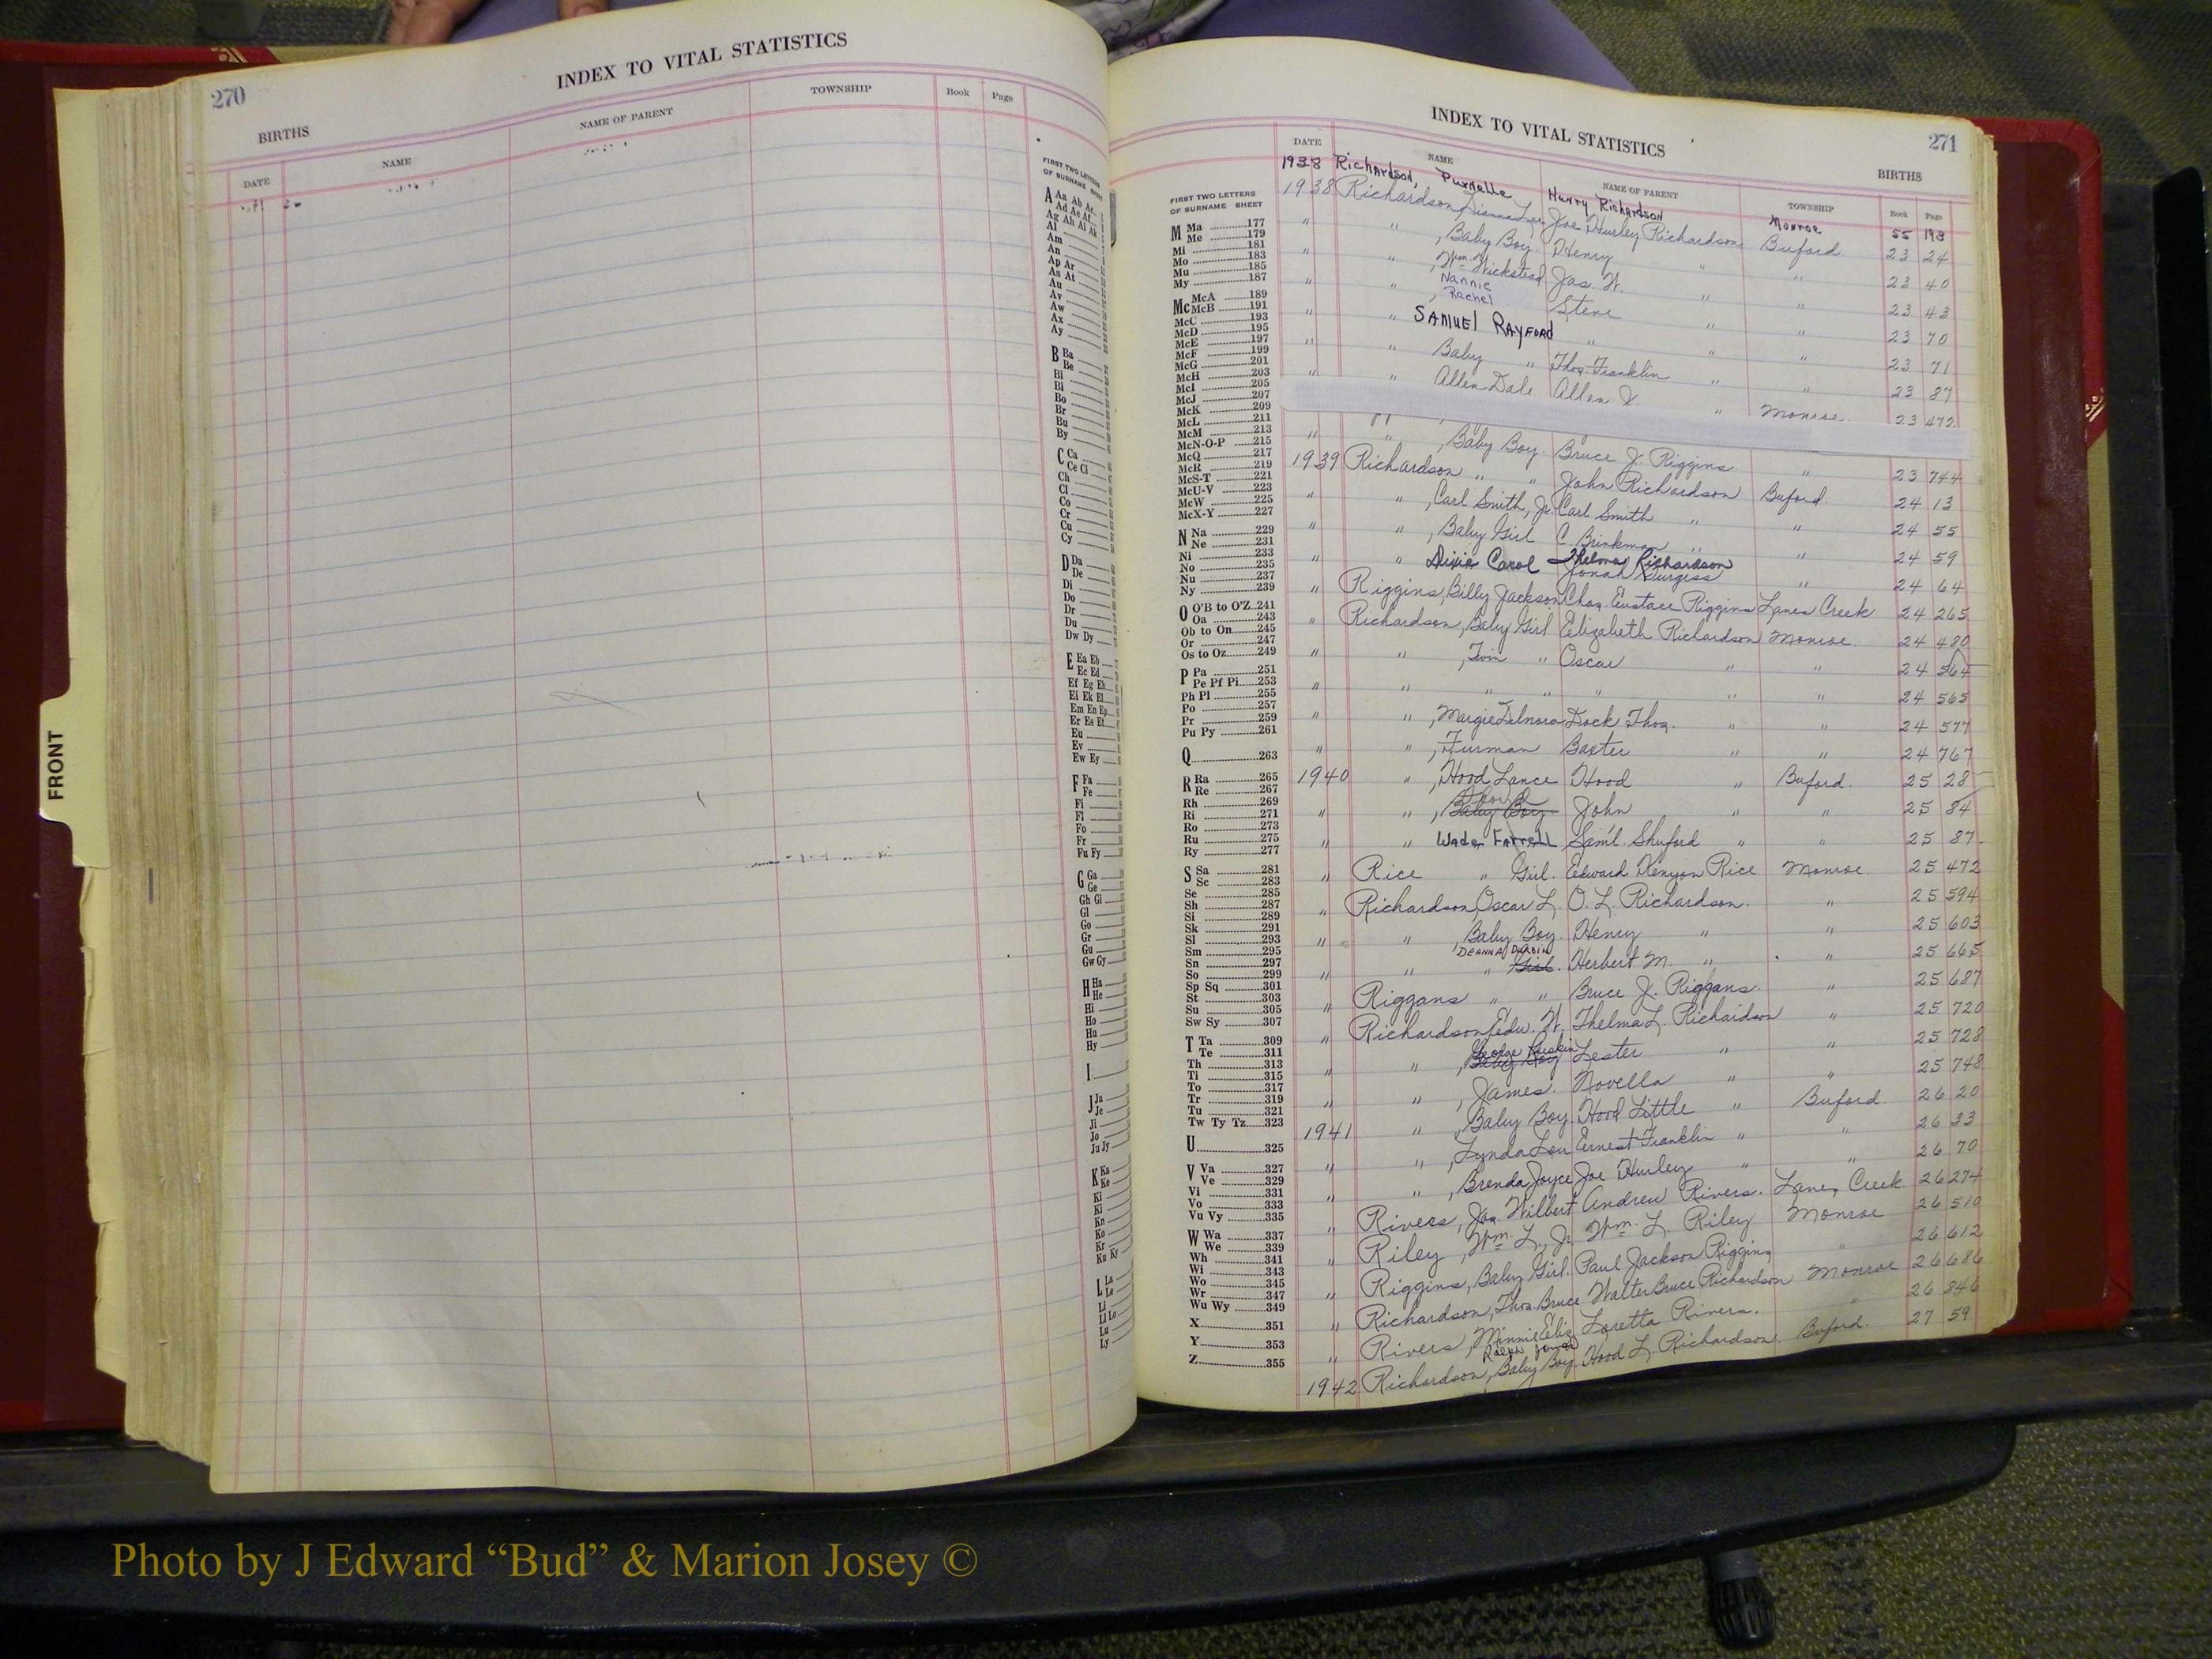 270
INDEX TO VITAL STATISTICS
BIRTHS
DATE NAME NAME OF PARENT TOWNSHIP Book Page
FRONT
FIRST TWO LETTERS
OF SURNAME SHEET
A Aa Ab Ac
Ad Ae Af
Ag Ah Ai Ak
Al
Am
An
Ap Ar
As At
Au
Av
Aw
Ax
Ay
B Ba
Be
Bi
Bl
Bo
Br
Bu
By
C Ca
Ce Ci
Ch
Cl
Co
Cr
Cu
Cy
D Da
De
Di
Do
Dr
Du
Dw Dy
E Ea Eb
Ec Ed
Ef Eg Eh
Ei Ek El
Em En Ep
Er Es Et
Eu
Ev
Ew Ey
F Fa
Fe
Fi
Fl
Fo
Fr
Fu Fy
G Ga
Ge
Gh Gi
Gl
Go
Gr
Gu
Gw Gy
H Ha
He
Hi
Ho
Hu
Hy
I
J Ja
Je
Ji
Jo
Ju Jy
K Ka
Ke
Ki
Kl
Kn
Ko
Kr
Ku Ky
L La
Le
Li
Ll Lo
Lu
Ly
INDEX TO VITAL STATISTICS
271
BIRTHS
DATE NAME NAME OF PARENT TOWNSHIP Book Page
FIRST TWO LETTERS
OF SURNAME SHEET
M Ma 177
Me 179
Mi 181
Mo 183
Mu 185
My 187
Mc McA 189
McB 191
McC 193
McD 195
McE 197
McF 199
McG 201
McH 203
McI 205
McJ 207
McK 209
McL 211
McM 213
McN-O-P 215
McQ 217
McR 219
McS-T 221
McU-V 223
McW 225
McX-Y 227
N Na 229
Ne 231
Ni 233
No 235
Nu 237
Ny 239
O O'B to O'Z 241
Oa 243
Ob to On 245
Or 247
Os to Oz 249
P Pa 251
Pe Pf Pi 253
Ph Pl 255
Po 257
Pr 259
Pu Py 261
Q 263
R Ra 265
Re 267
Rh 269
Ri 271
Ro 273
Ru 275
Ry 277
S Sa 281
Sc 283
Se 285
Sh 287
Si 289
Sk 291
Sl 293
Sm 295
Sn 297
So 299
Sp Sq 301
St 303
Su 305
Sw Sy 307
T Ta 309
Te 311
Th 313
Ti 315
To 317
Tr 319
Tu 321
Tw Ty Tz 323
U 325
V Va 327
Ve 329
Vi 331
Vo 333
Vu Vy 335
W Wa 337
We 339
Wh 341
Wi 343
Wo 345
Wr 347
Wu Wy 349
X 351
Y 353
Z 355
1938 Richardson, Purnelle Henry Richardson Monroe 55 193
1938 Richardson, Dianna Lee Joe Hurley Richardson Buford 23 24
" " , Baby Boy Henry " " 23 40
" " , Wm. Wickstead Jas. W. " " 23 43
" " , Nannie Rachel Steve " " 23 70
" " SAMUEL RAYFORD " " " 23 71
" " Baby " Thos. Franklin " " 23 87
" " Allen Dale Allen J. " Monroe 23 472
" " , Baby Boy Bruce J. Riggins " 23 744
1939 Richardson " " John Richardson Buford 24 13
" " , Carl Smith, Jr. Carl Smith " " 24 55
" " , Baby Girl C. Brinkman " " 24 59
" " Dixie Carol Thelma Richardson Jonah Burgess " 24 64
" Riggins, Billy Jackson Chas. Eustace Riggins Lanes Creek 24 265
" Richardson, Baby Girl Elizabeth Richardson Monroe 24 480
" " , Twin " Oscar " " 24 564
" " " " " " " 24 565
" " , Margie Dock Thos. " " 24 577
" " , Furman Baxter " " 24 767
1940 " , Hood Lance Hood " Buford 25 28
" " , Baby Boy John " " 25 84
" " Wade Farrell Sam'l Shuford " " 25 87
" Rice " Girl Edward Kenyon Rice Monroe 25 472
" Richardson, Oscar L. O. L. Richardson " 25 594
" " , Baby Boy Henry " " 25 603
" " DEANNA DURBIN " Girl Herbert M. " " 25 665
" Riggans " " Bruce J. Riggans " 25 687
" Richardson, Edw. W. Thelma L. Richardson " 25 720
" " , George Ruskin Baby Boy Lester " " 25 728
" " , James Novella " " 25 748
1941 " , Baby Boy Hood Little " Buford 26 20
" " , Lynda Lou Ernest Franklin " " 26 33
" " , Brenda Joyce Joe Hurley " " 26 70
" Rivers, Jas. Wilbert Andrew Rivers Lanes Creek 26 274
" Riley, Wm. L., Jr. Wm. L. Riley Monroe 26 510
" Riggins, Baby Girl Paul Jackson Riggins " 26 612
" Richardson, Thos. Bruce Walter Bruce Richardson Monroe 26 686
" Rivers, Minnie Eliz. Loretta Rivers " 26 846
1942 Richardson, Baby Boy Hood L. Richardson Buford 27 59
Photo by J Edward “Bud” & Marion Josey ©